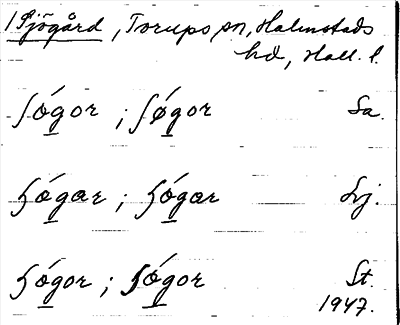 1 Sjögård, Torups sn, Halmstads
hd, Hall. l.
ʃǿgor ; ʃǿgor Sa.
ɧǿgar ; ɧǿgar Lj.
ɧǿgor ; ɧǿgor St.
1947.